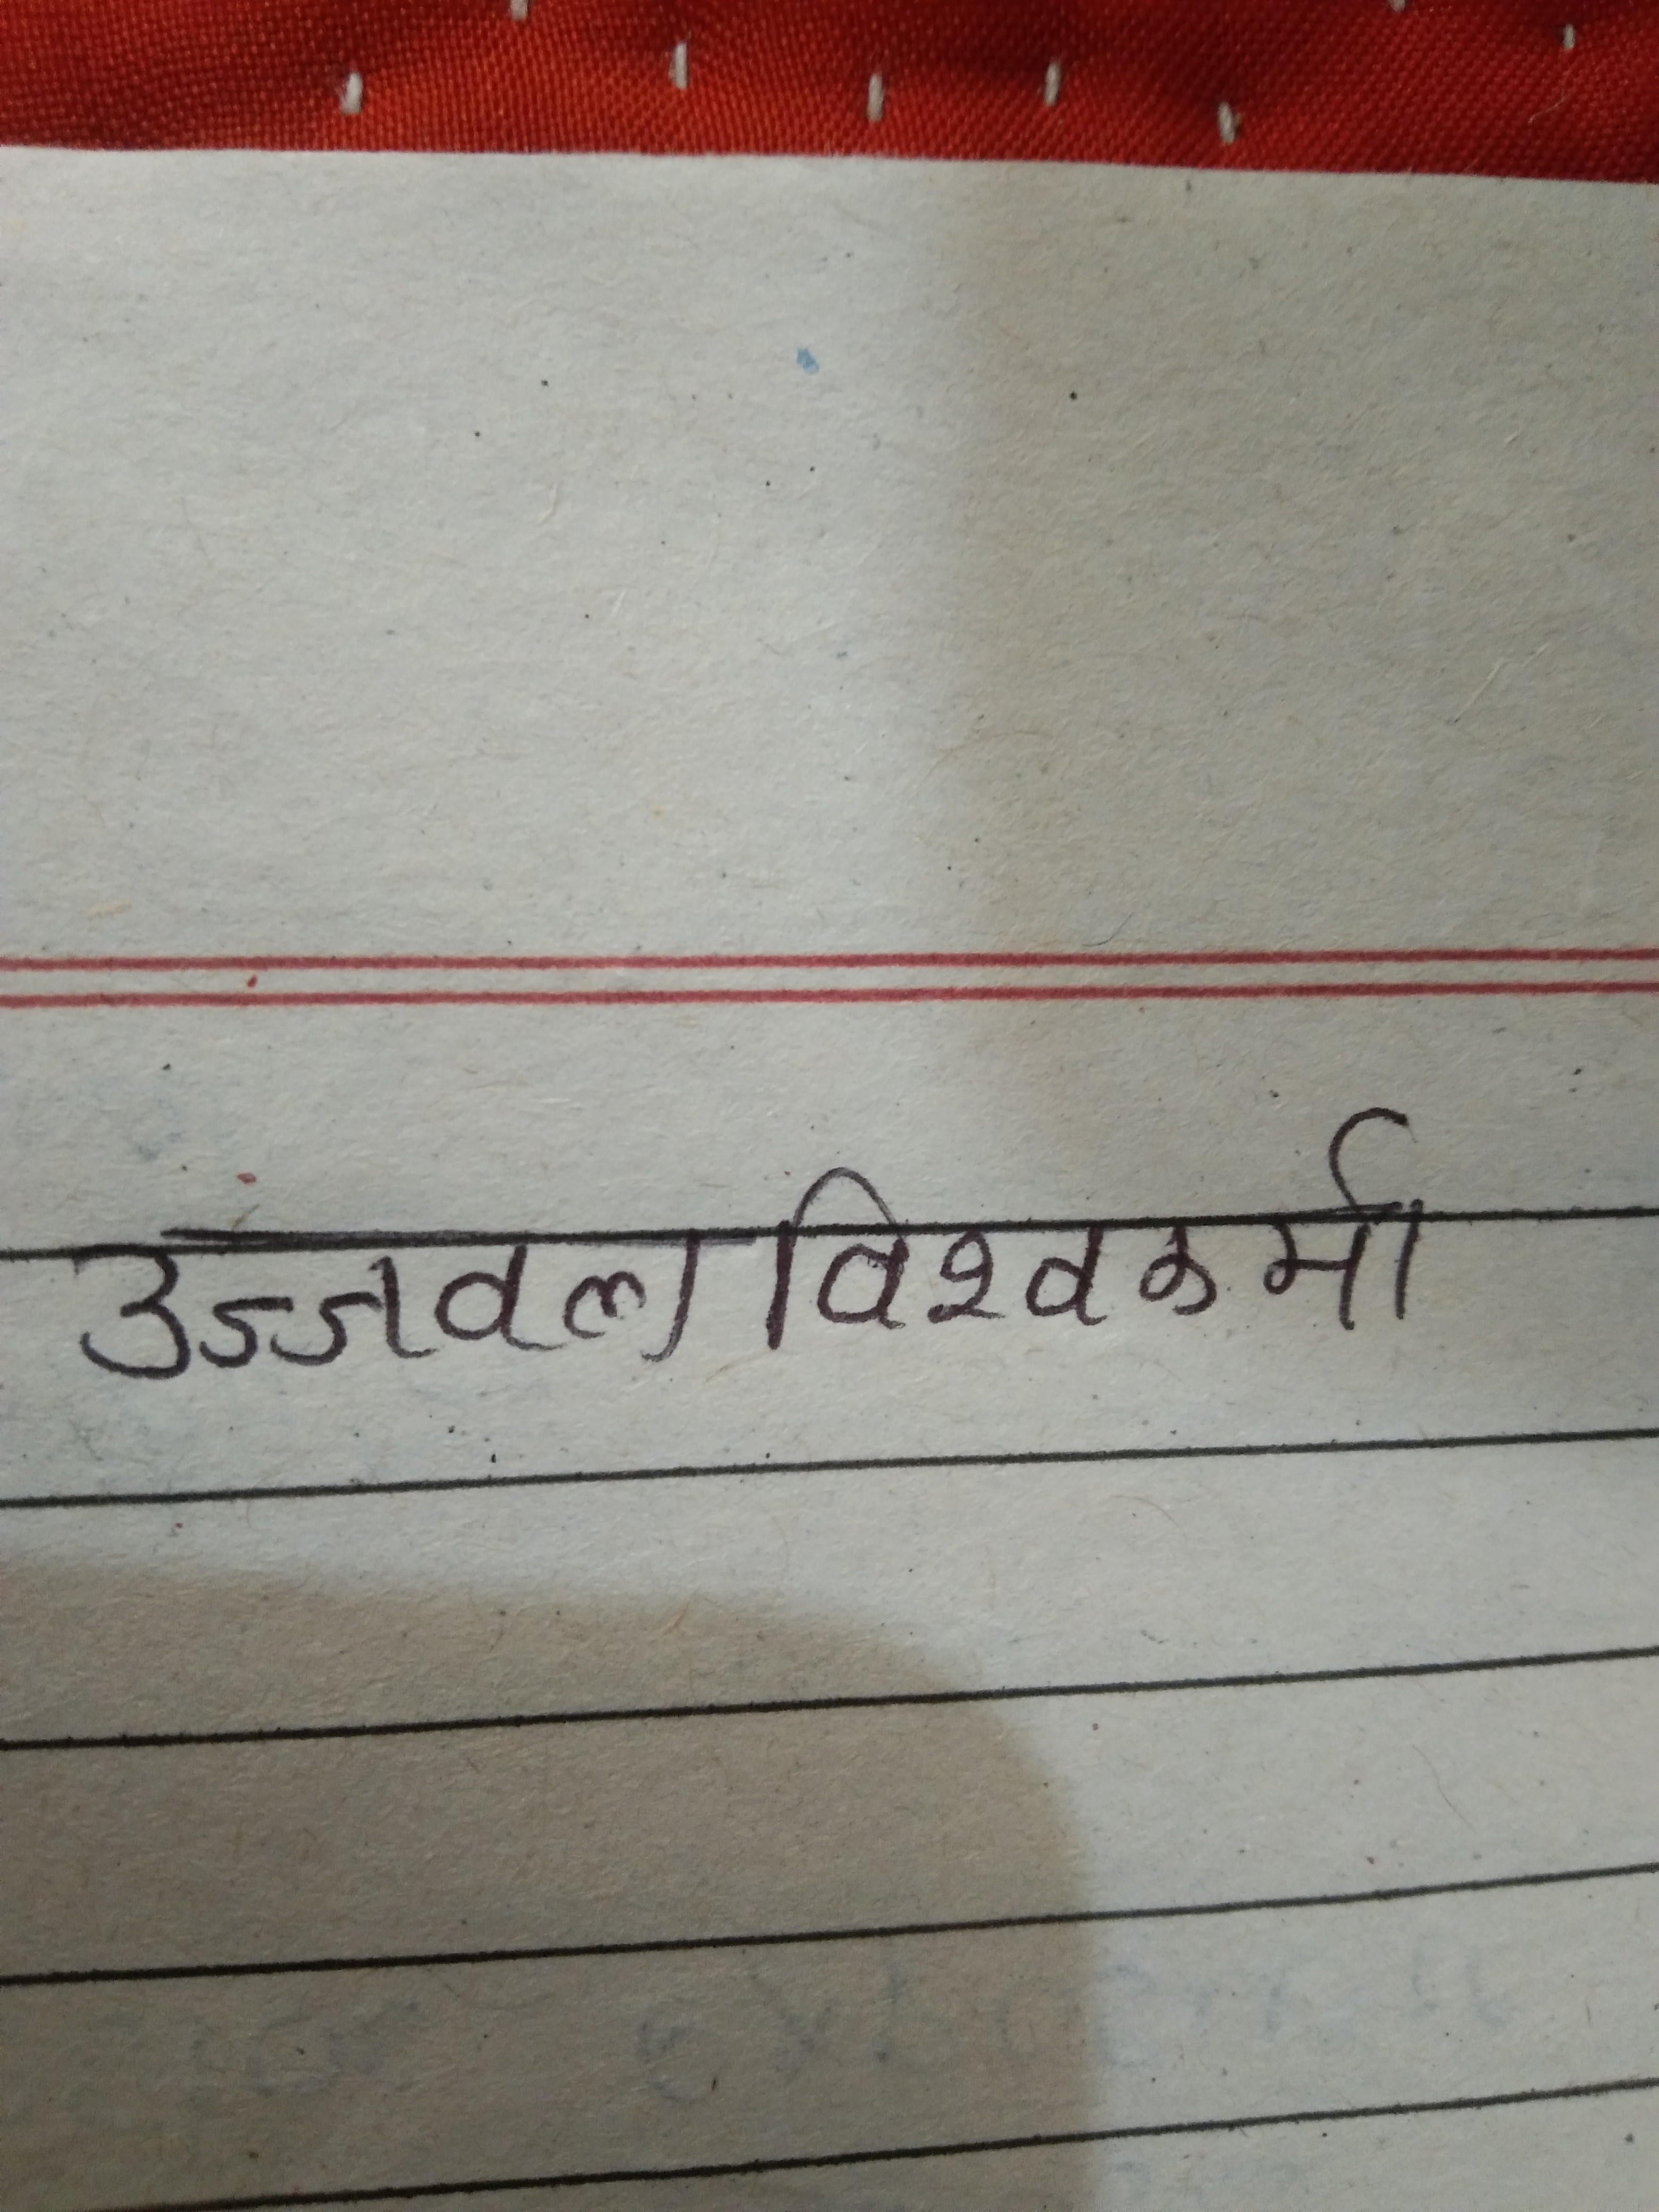 उज्जवल विश्वकर्मा